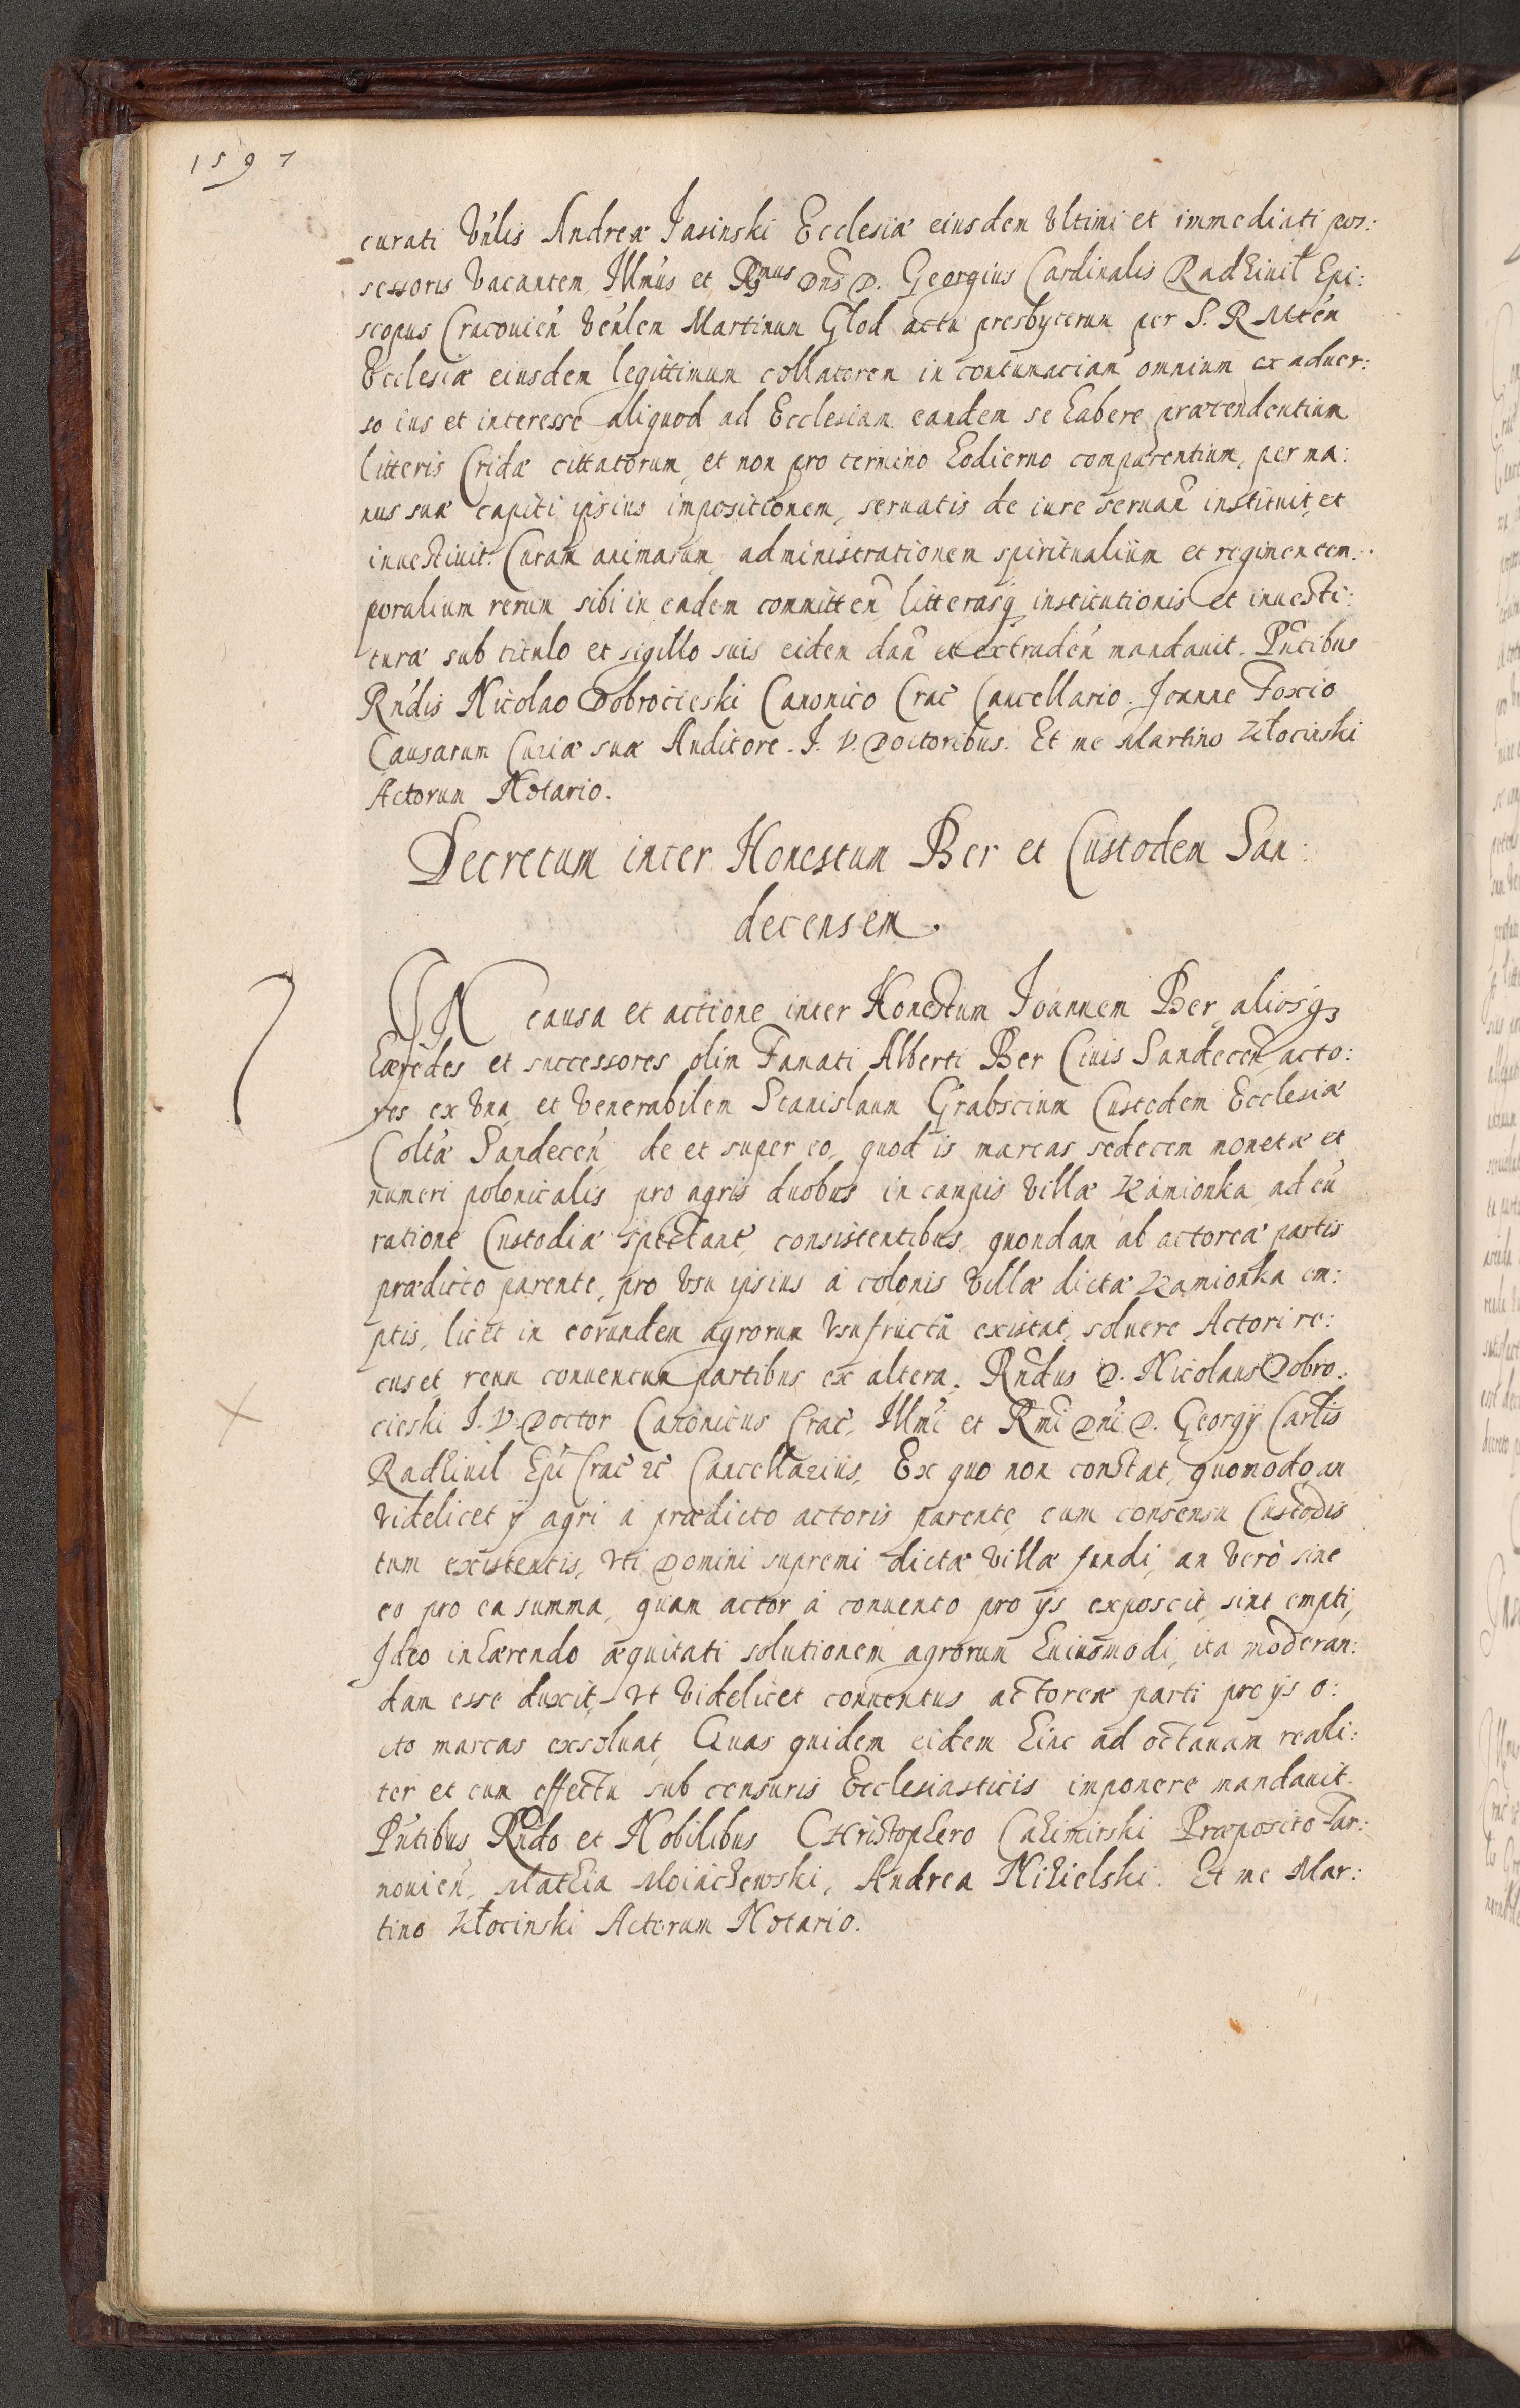 1597
curati Vn̄lis Andreæ Jasinski Ecclesiæ eiusdem vltimi et immediati pos:
sessoris vacantem, Illmus et Rmus Dns D. Georgius Cardinalis Radhiuil Epi:
scopus Cracouien̄ Ven̄lem Martinum Glod actu presbyterum per S. R Mten̄
Ecclesiæ eiusdem legittimum collatorem in contumaciam omnium ex aduer:
so ius et interesse aliquod ad Ecclesiam eandem se habere prætendentium
litteris Cridæ cittatorum, et non pro termino hodierno comparentium, per ma:
nus suæ capiti ipsius impositionem, seruatis de iure seruan̄ instituit, et
inuestiuit. Curam animarum, administrationem spiritualium et regimen tem:
poralium rerum sibi in eadem committen̄ litterasq̨ institutionis et inuesti:
turæ sub titulo et sigillo suis eidem dan̄ et extraden̄ mandauit. Pn̄tibus
Rn̄dis Nicolao Dobrocieski Canonico Crac̄ Cancellario. Joanne Foxio
Causarum Curiæ suæ Auditore. J. V. Doctoribus. Et me Martino Złocinski
Actorum Notario.
Decretum inter Honestum Ber et Custodem San:
decensem.
IN causa et actione inter Honestum Joannem Ber, aliosq3
hæredes et successores olim Famati Alberti Ber Ciuis Sandecen̄, acto:
res ex vna, et Venerabilem Stanislaum Grabscium Custodem Ecclesiæ
Coltæ Sandecen̄ de et super eo, quod is marcas sedecem monetæ et
numeri polonicalis pro agris duobus in campis villæ Kamionka ad eū
ratione Custodiæ spectant̄, consistentibus, quondam ab actoreæ partis
prædicto parente, pro vsu ipsius à colonis villæ dictæ Kamionka em:
ptis, licet in eorundem agrorum vsufructu existat, soluere Actori re:
cuset reum conuentum partibus ex altera. Rn̄dus D. Nicolaus Dobro:
cieski J. V. Doctor Canonicus Crac̄, Illmi et Rmi Dni D. Georgij Cartlis
Radhiuil Epi Crac̄ zc̄ Cancellarius, Ex quo non constat, quomodo, an
videlicet ij agri à prædicto actoris parente, cum consensu Custodis
tum existentis, vti Domini supremi dictæ villæ fundi, an verò sine
eo pro ea summa, quam actor à conuento pro ijs exposcit, sint empti,
Ideo inhærendo æquitati solutionem agrorum huiusmodi, ita moderan:
dam esse duxit, vt videlicet conuentus actoreæ parti pro ijs o:
cto marcas exsoluat, Quas quidem eidem hinc ad octauam reali:
ter et cum effectu sub censuris Ecclesiasticis imponere mandauit.
Pn̄tibus Rn̄do et Nobilibus CHristophero Cazimirski Præposito Tar:
nouien̄, Mathia Moiaczewski, Andrea Nizielski. Et me Mar:
tino Złocinski Actorum Notario.